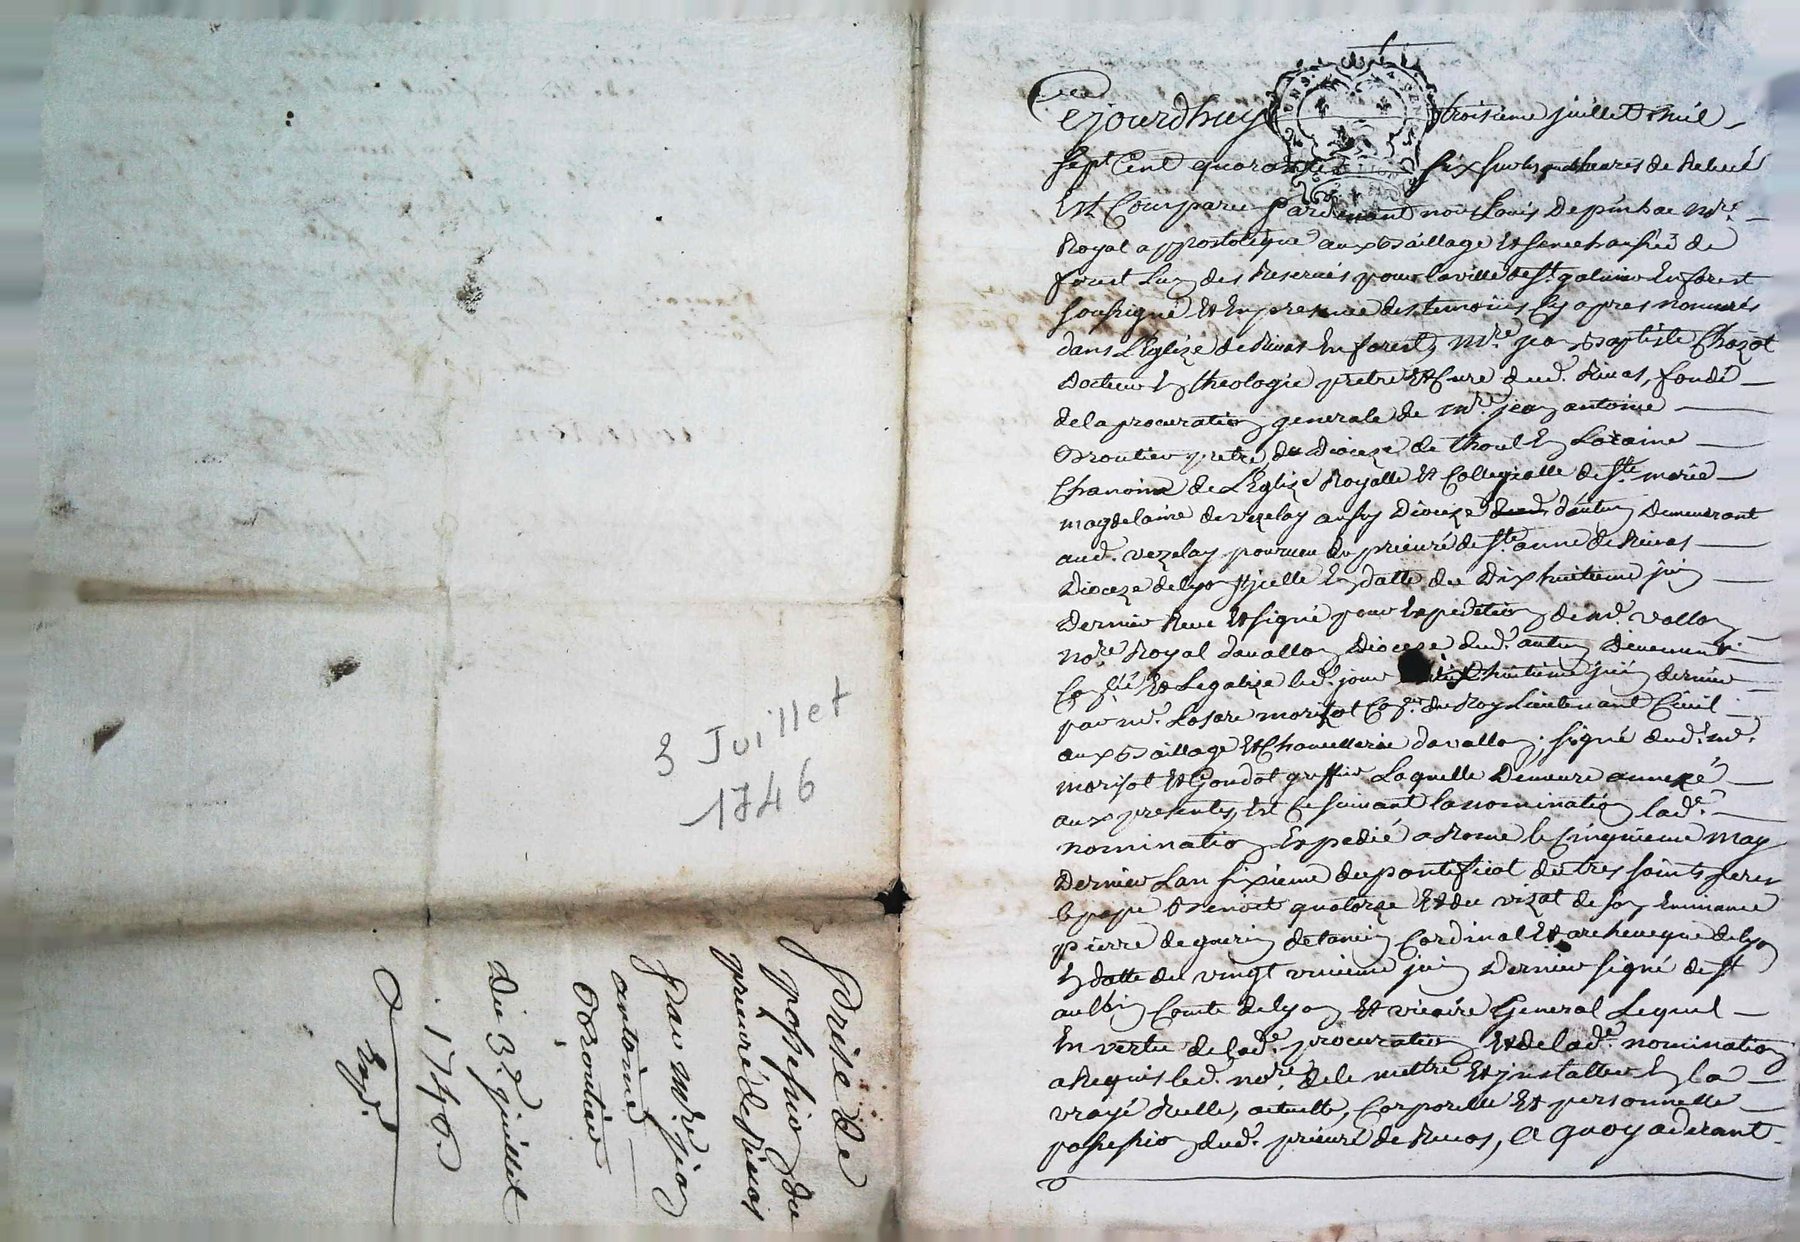 3 Juillet
1746
Prise de
possession du
prieuré de Rivas
par Mre jean
antoine
Broutier
du 3e juillet
1746
Exp.
Cejourdhuy troisieme juillet mil
sept Cent quarante six sur les heures de Relevé
Est Comparu Pardevant nous Louis Depinhac nore
Royal appostolique aux Baillage Et senechaussée de
forest Lun des Reservés pour la ville de St galmier En forest
soussigné Et En presence des temoins Cy apres nommés
dans L'Eglize de Rivas En forest, Mre jean Baptiste Chazot
Docteur En theologie pretre Et Curé dud. Rivas, fondé
de la procuration generale de Mre jean antoine
Broutier pretre du Dioceze de thoul En Loraine
Chanoine de L'Eglize Royalle Et Collegialle de Ste marie
magdelaine de vezelay Dioceze d'autun Demeurant
aud. vezelay pourveu du prieuré de Ste anne de Rivas
Dioceze de lyon Et jcelle En datte du Dix huitieme juin
Dernier Receu Et signé pour Expedition de Me. vallon
nore Royal davallon Dioceze dud. autun Deuement
Et Legalizé led. jour dix huitieme juin dernier
par Mr. Lasare morisot Coner du Roy Lieutenant Civil
aux Baillage Et Chancellerie davallon, signé dud. Mr.
morisot Et Gondot greffier Laquelle Demeure annexé
aux presentes, Et Ce suivant la nomination lade
nomination Expedié a Rome le Cinquieme May
Dernier Lan sixieme du pontificat du tres saints perer
le pape Benoit quatorze Et du vizat de son Eminance
pierre de guerin de tancin Cardinal Et archeveque de lyon
En datte du vingt unieme juin Dernier signé de st
aulbin Comte de lyon Et vicaire General Lequel
En vertu de lade procuration Et de lade nomination
a Requis led. nore de le mettre Et jnstaller En la
vrayé Réelle, actuelle, Corporelle Et personnelle
possession dud. prieuré de Rivas, a quoy aderant